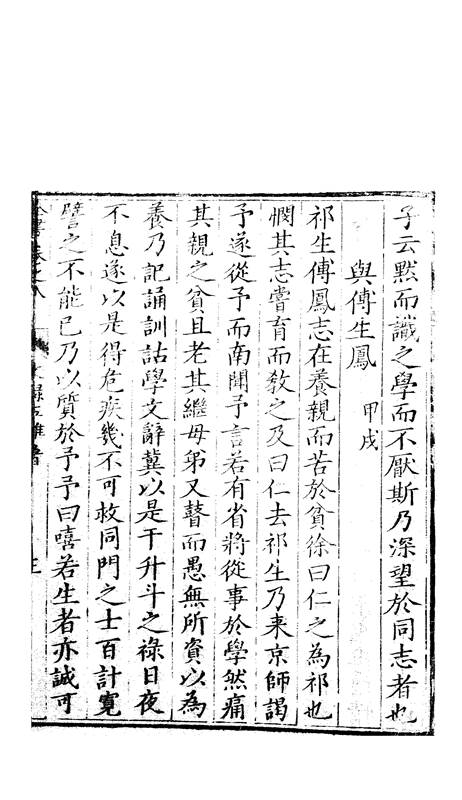 子云默而識之學而不厭斯乃深望於同志者也
與傅生鳳 甲戌
祁生傅鳳志在養親而苦於貧徐曰仁之為祁也
憫其志嘗育而敎之及曰仁去祁生乃来京師謁
予遂從予而南聞予言若有省將從事於學然痛
其親之貧且老其繼母弟又瞽而愚無所資以為
養乃記誦訓詁學文辭冀以是干升斗之祿日夜
不息遂以是得危疾幾不可救同門之士百計寬
譬之不能已乃以質於予予曰嘻若生者亦誠可